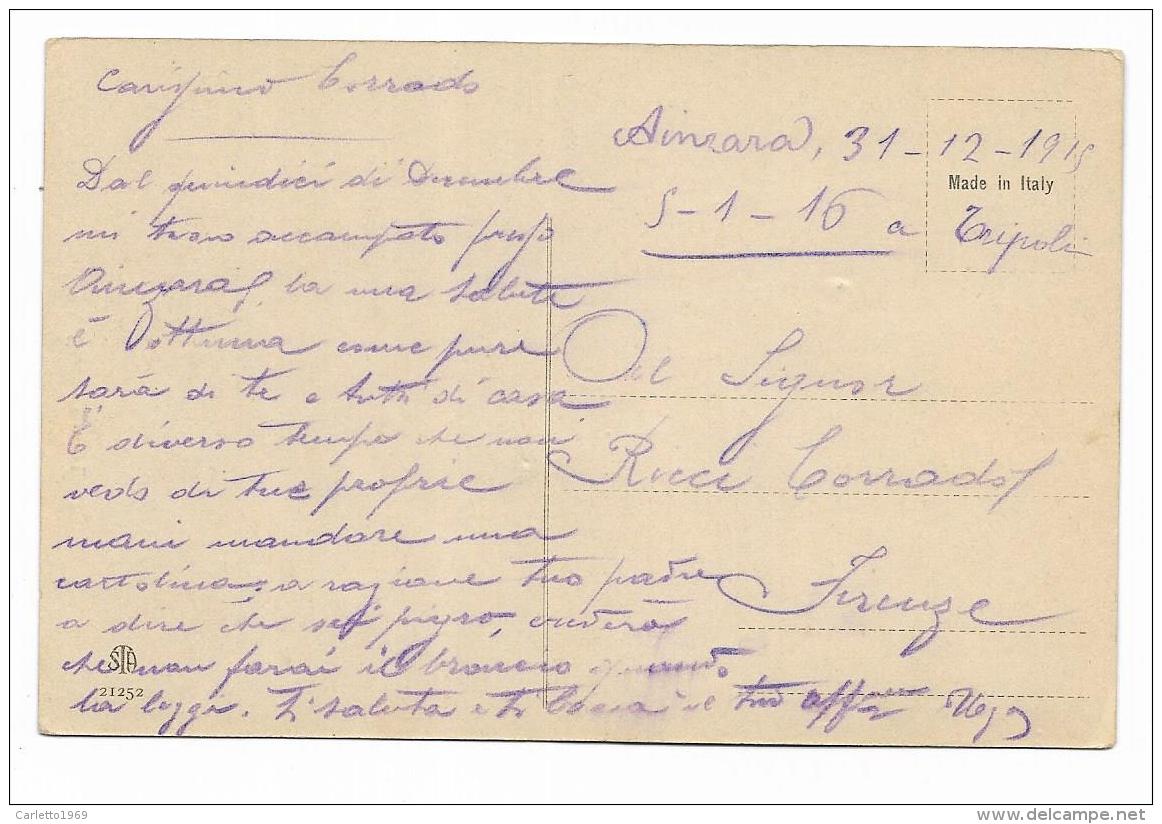 Carissimo Corrado
Dal quindici di Decembre
mi trovo accampato presso
Ainzara, la mia salute
è ottima come pure
sarà di te e tutti di casa
È diverso tempo che non
vedo di tue proprie
mani mandare una
cartolina; a ragione tuo padre
a dire che sei pigro,
che non farai il broncio quando
la leggi. Ti saluta e ti bacia il tuo affmo
Ainzara, 31-12-1915
5-1-16 a Tripoli
Made in Italy
Al Signor
Ricci Corrado
Firenze
STA
21252
Carletto1969
www.delcampe.net